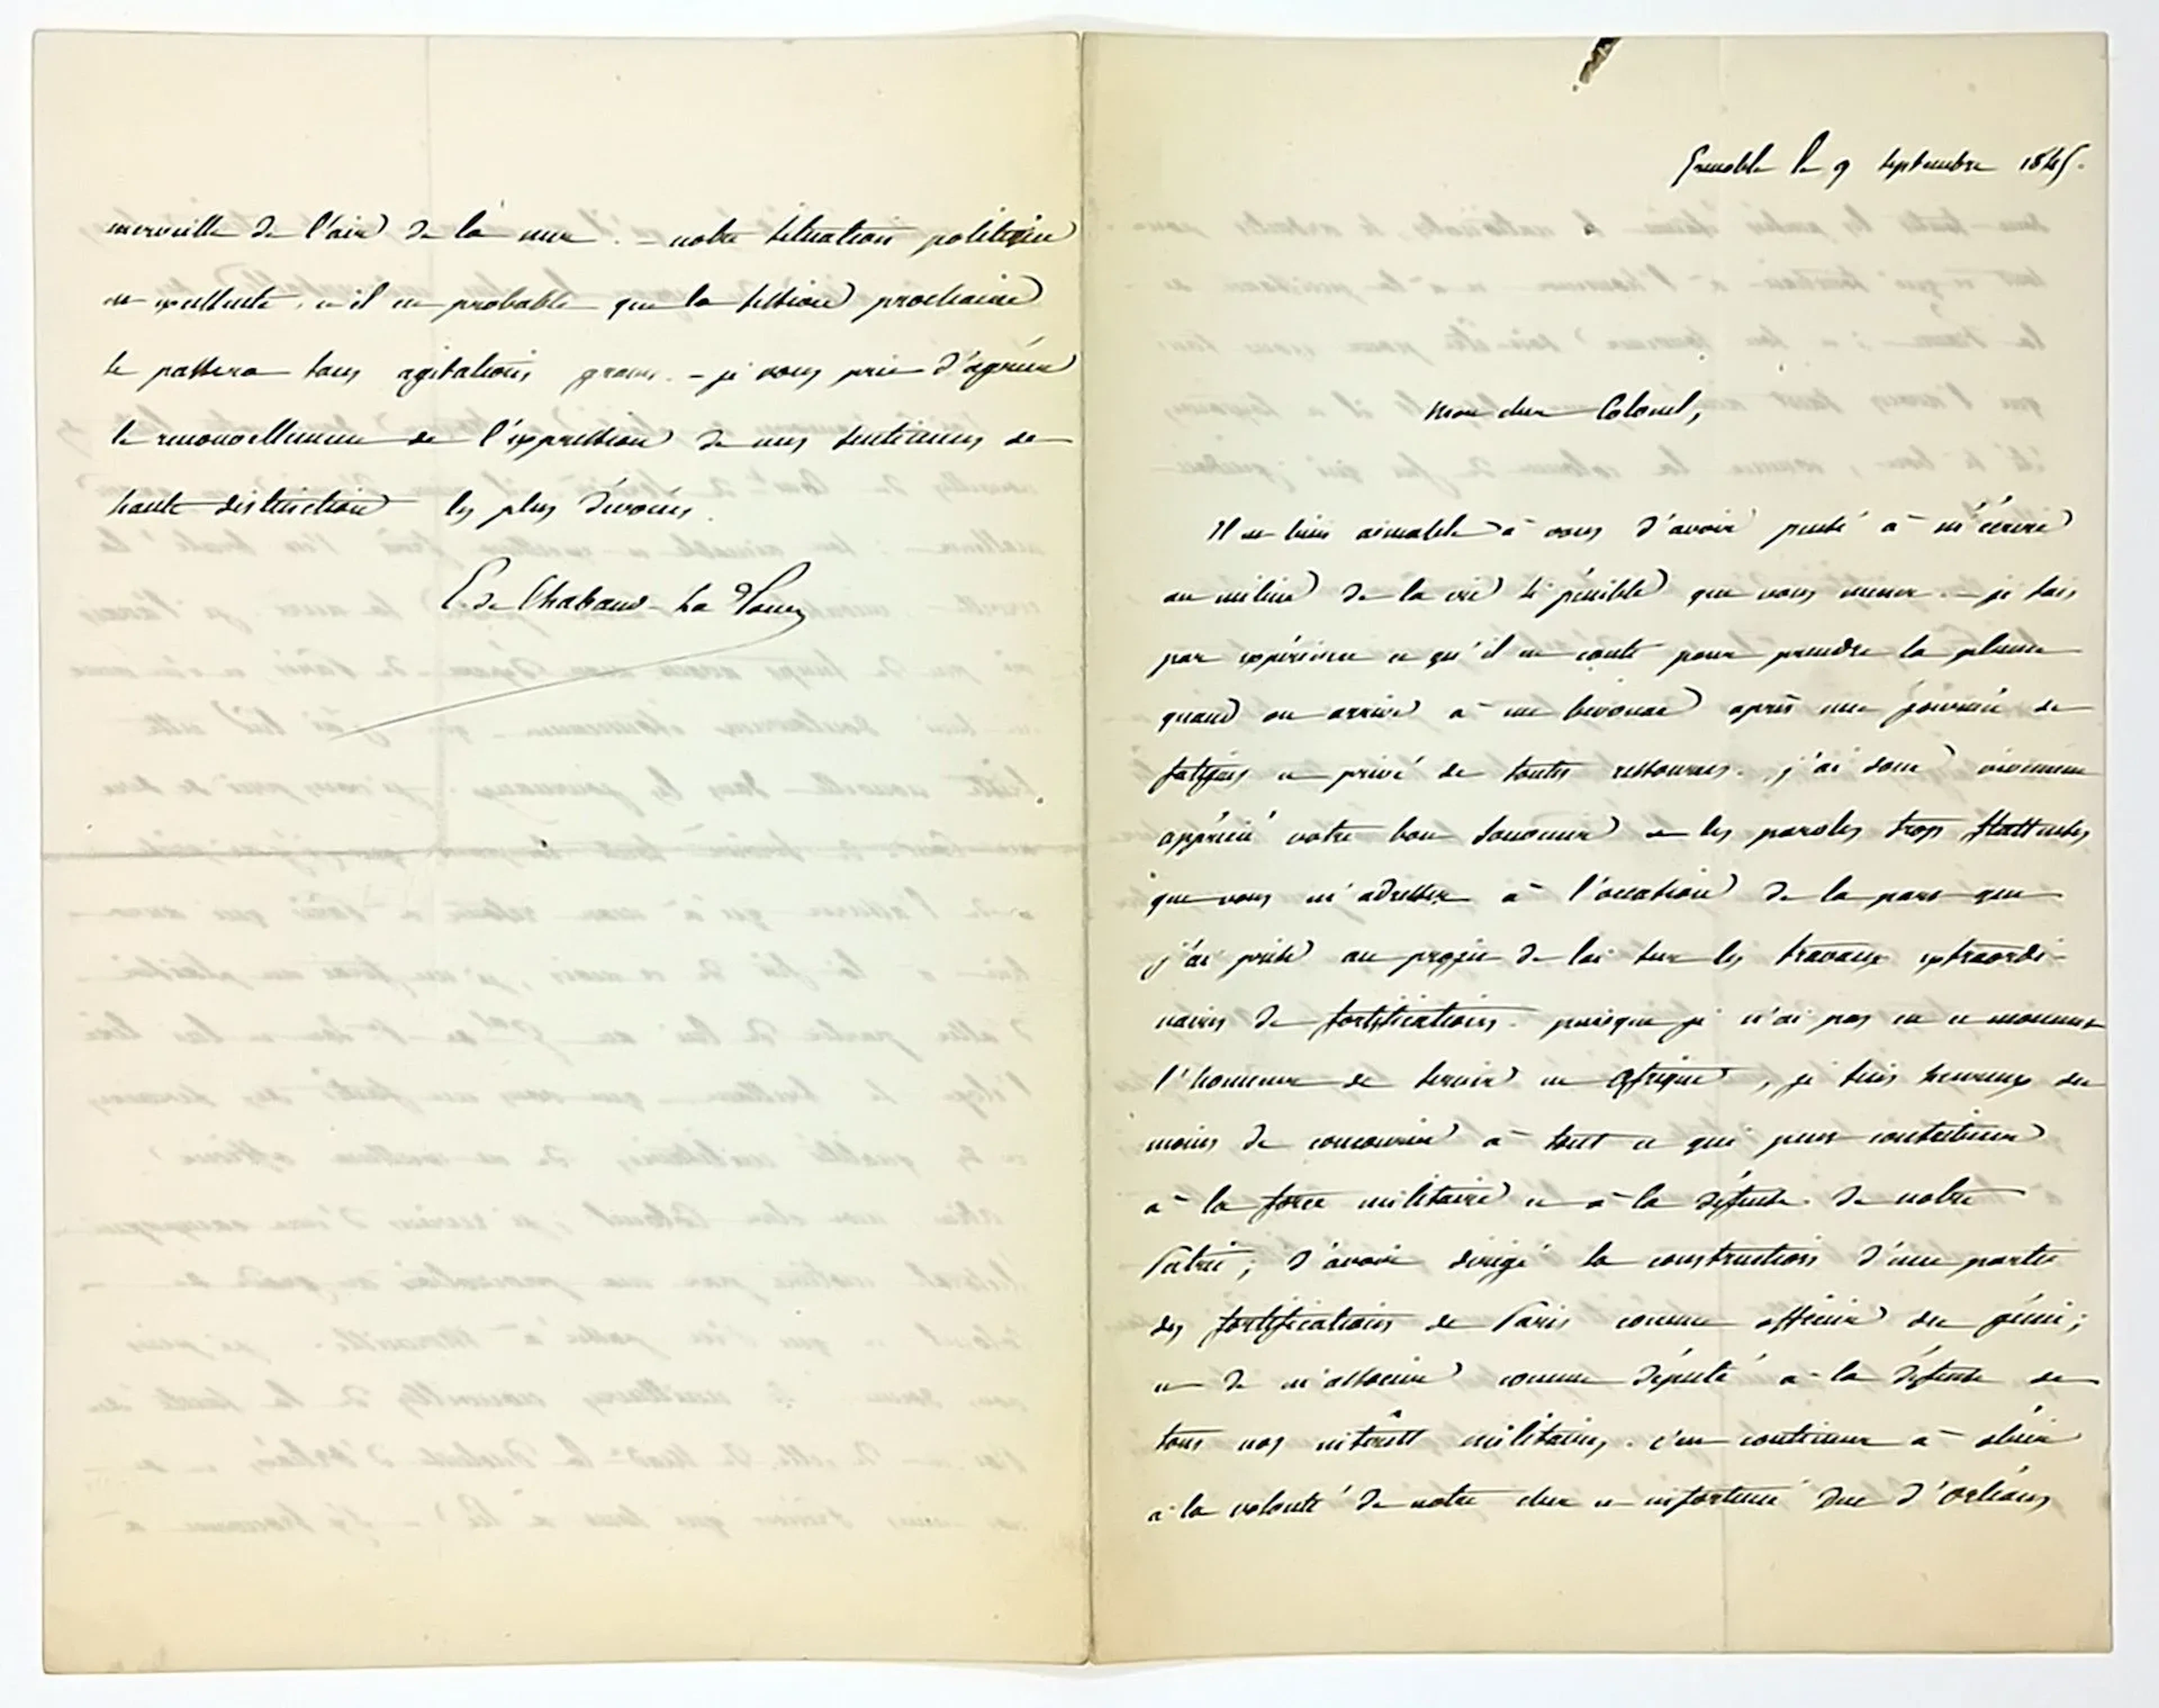 Grenoble le 9 septembre 1845.
mon cher Colonel,
Il est bien aimable à vous d'avoir pensé à m'écrire
au milieu de la vie si pénible que vous menez. - je sais
par expérience ce qu'il en coute pour prendre la plume
quand on arrive à un bivouac après une journée de
fatigues et privé de toutes ressources. j'ai donc vivement
apprécié votre bon souvenir et les paroles trop flatteuses
que vous m'adressez à l'occasion de la part que
j'ai prise au projet de loi sur les travaux extraordi-
naires de fortifications. puisque je n'ai pas en ce moment
l'honneur de servir en Afrique, je suis heureux du
moins de concourir à tout ce qui peut contribuer
à la force militaire et à la défense de notre
Patrie; d'avoir dirigé la construction d'une partie
des fortifications de Paris comme officier du génie;
et de m'associer comme député à la défense de
tous nos intérêts militaires. c'est continuer à obéir
à la volonté de notre cher et infortuné Duc d'Orléans
merveille de l'air de la mer. - notre situation politique
est excellente, et il est probable que la session prochaine
se passera sans agitations graves. - je vous prie d'agréer
le renouvellement de l'expression de mes sentimens de
haute distinction les plus dévoués.
E. de Chabaud-La Tour